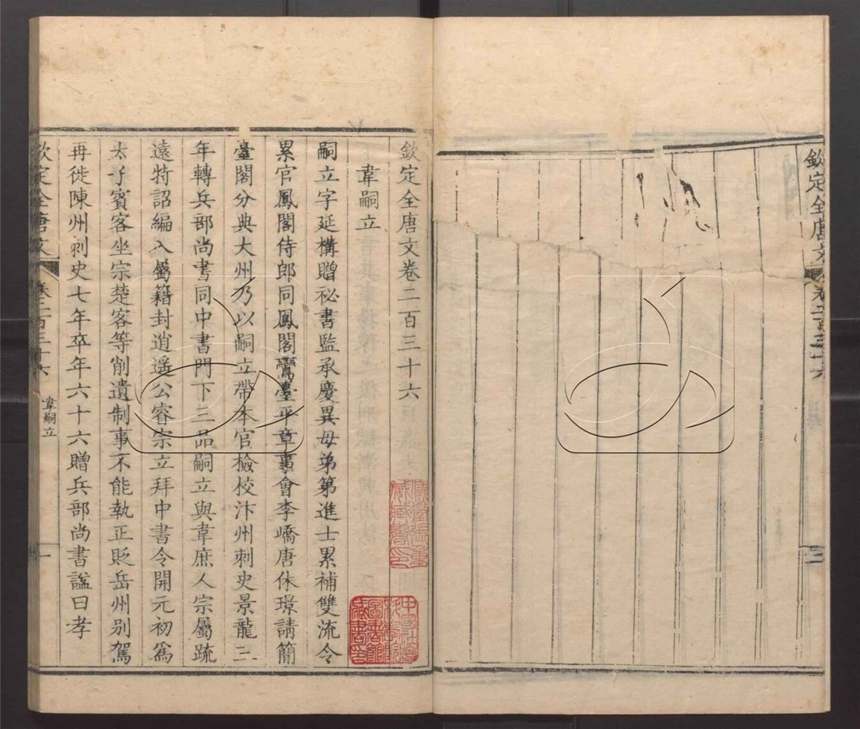 欽定全唐文
三
欽定全唐文卷二百三十六
韋嗣立
嗣立字延構贈祕書監承慶異母弟第進士累補雙流令
累官鳳閣侍郎同鳳閣鸞臺平章事會李嶠唐休璟請簡
臺閣分典大州乃以嗣立帶本官檢校汴州刺史景龍三
年轉兵部尚書同中書門下三品嗣立與韋庶人宗屬疏
遠特詔編入屬籍封逍遙公睿宗立拜中書令開元初為
太子賓客坐宗楚客等削遺制事不能執正貶岳州別駕
再徙陳州刺史七年卒年六十六贈兵部尚書諡曰孝
欽定全唐文
卷二百三十六
韋嗣立
一